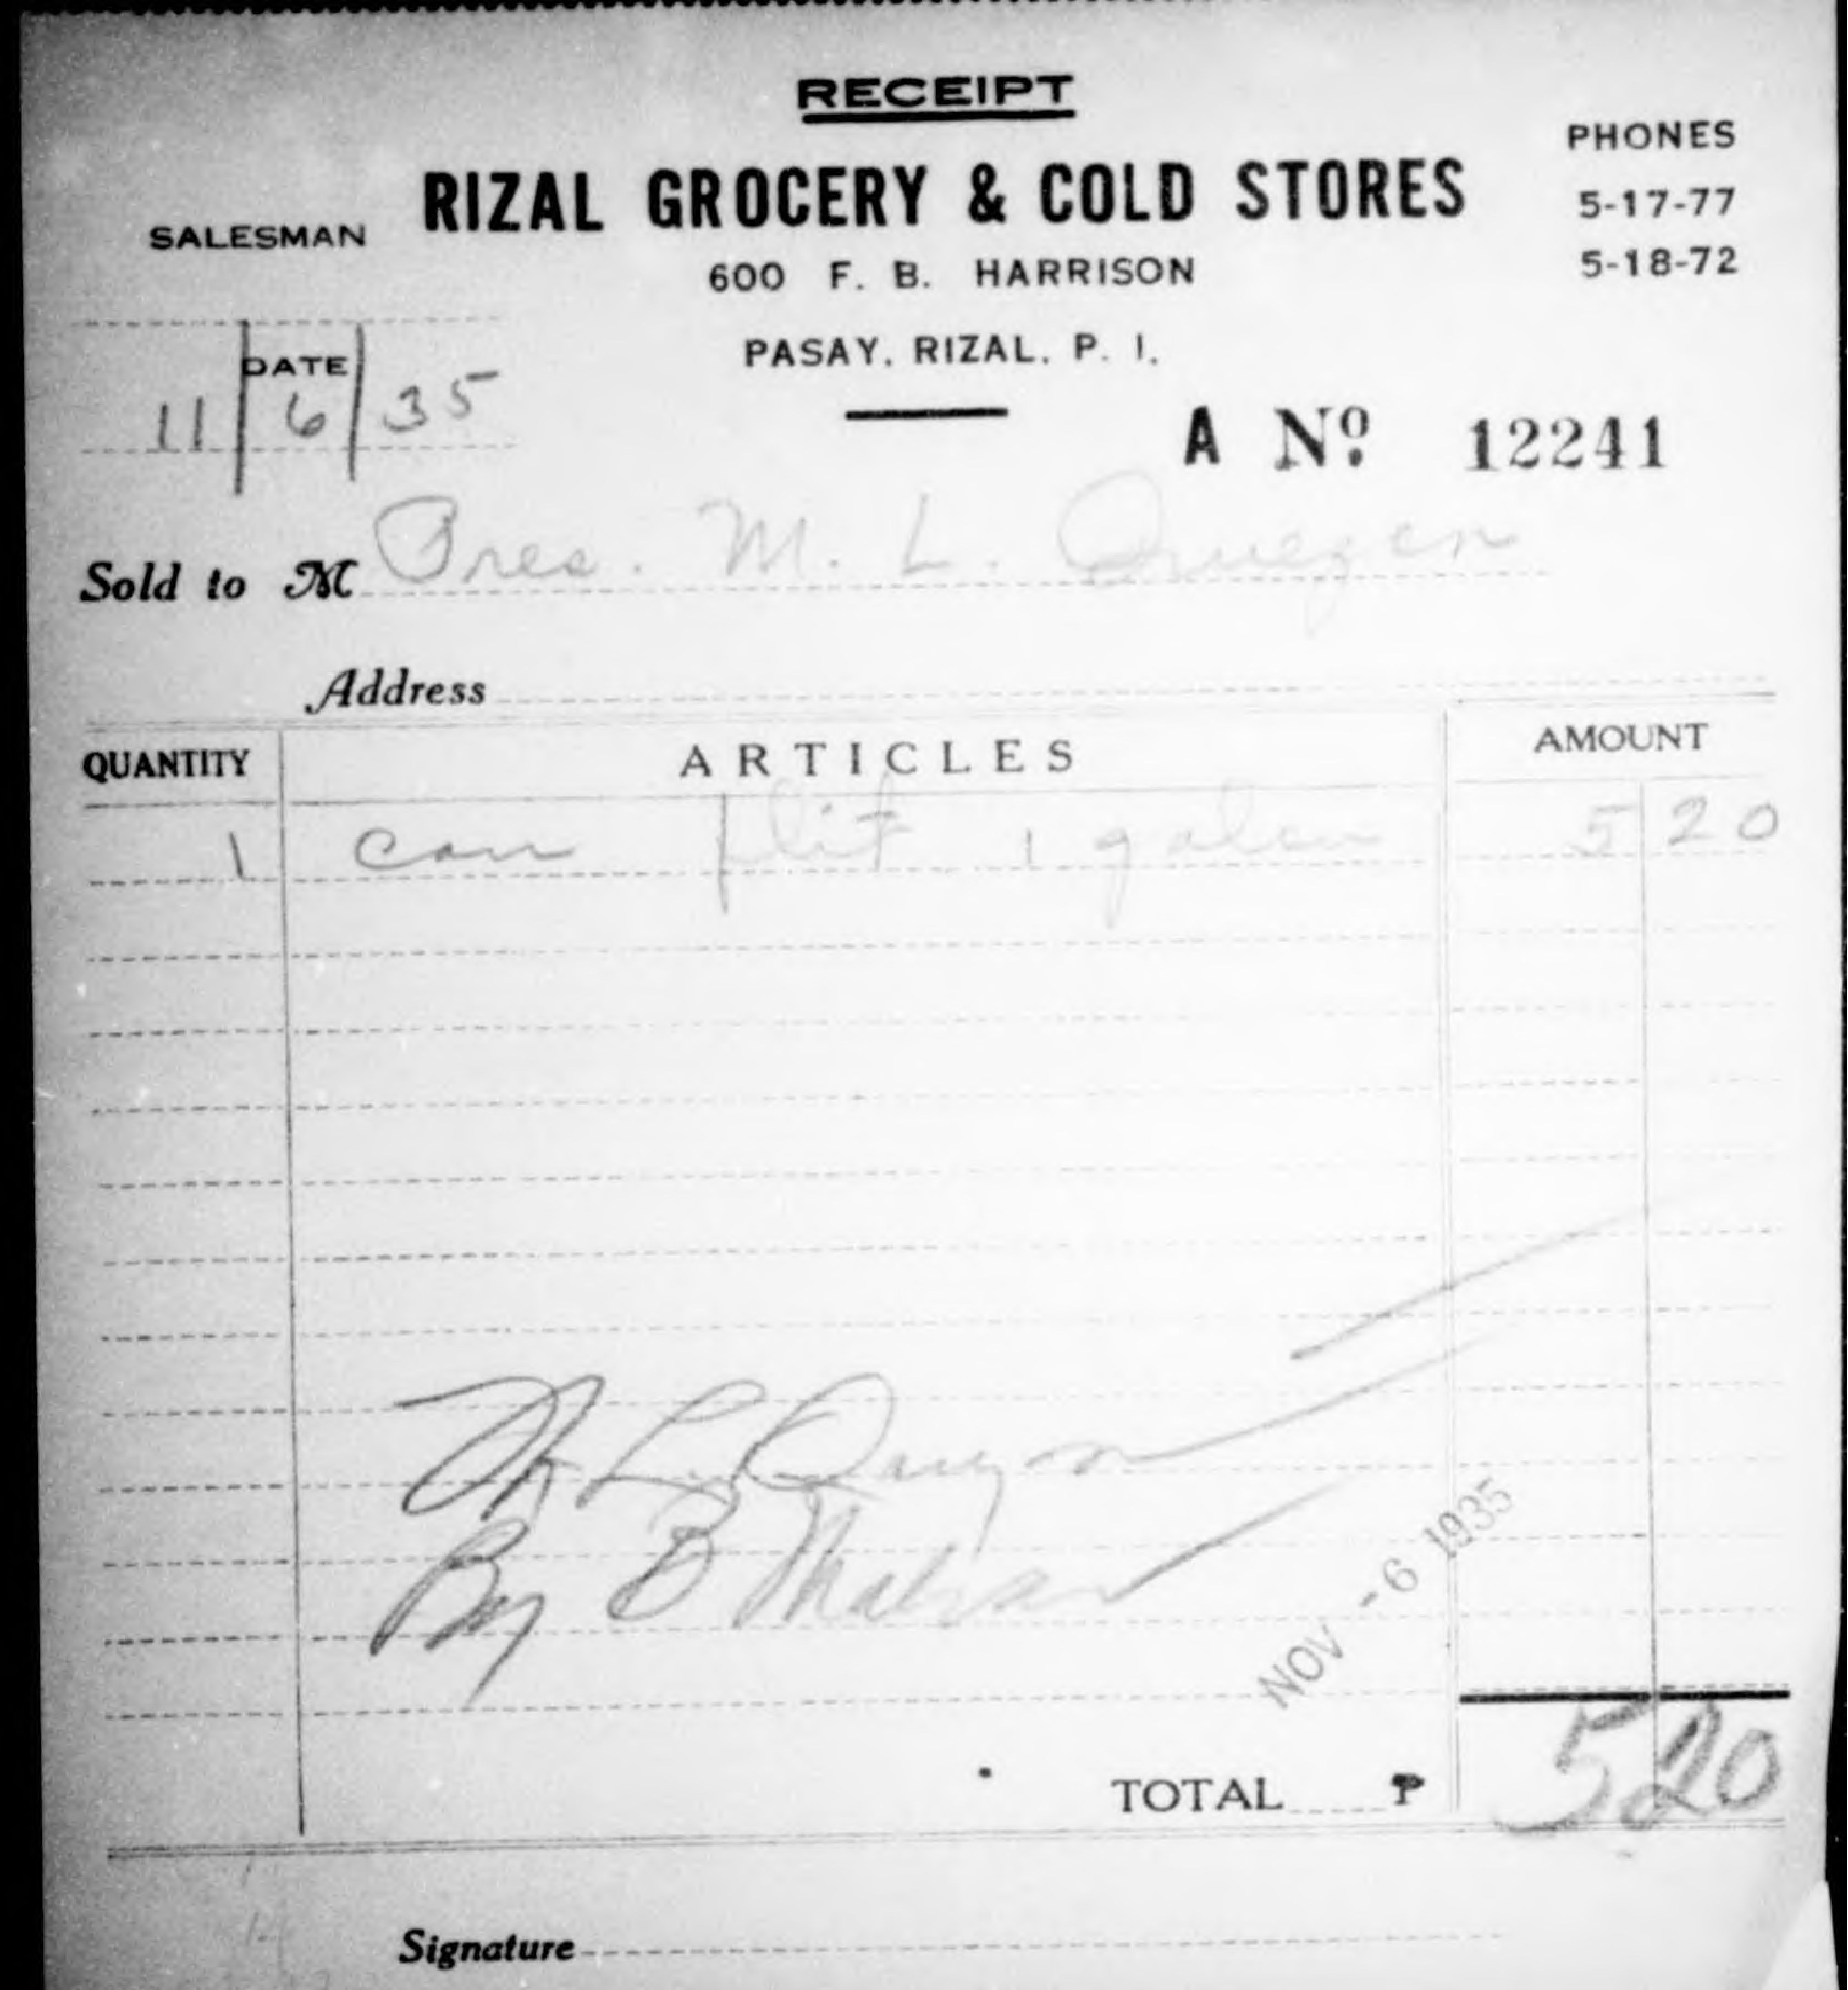 RECEIPT
PHONES
RIZAL GROCERY & COLD STORES
5-17-77
SALESMAN
5-18-72
600 F. B. HARRISON
PASAY, RIZAL, P. I.
DATE
11/6/35
A Nº 12241
Sold to M Pres. M. L. Quezon
Address
QUANTITY ARTICLES AMOUNT
1 can flit 1 galon 5 20
M L Quezon
By B
NOV -6 1935
TOTAL ₱ 5 20
Signature